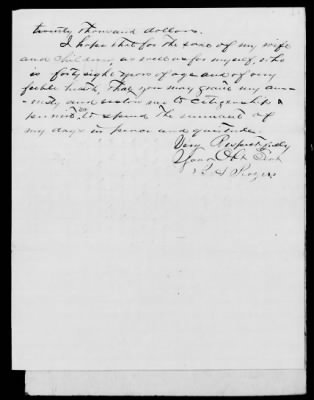 twenty thousand dollars.
I hope that for the sake of my wife
and children, as well as for myself, who
is forty eight years of age and of very
feeble health, that you may grant my am-
nesty and restore me to citizenship &
permit to spend the remnant of
my days in peace and quietude.
Very Respectfully
Your Obt Svt
Rogers